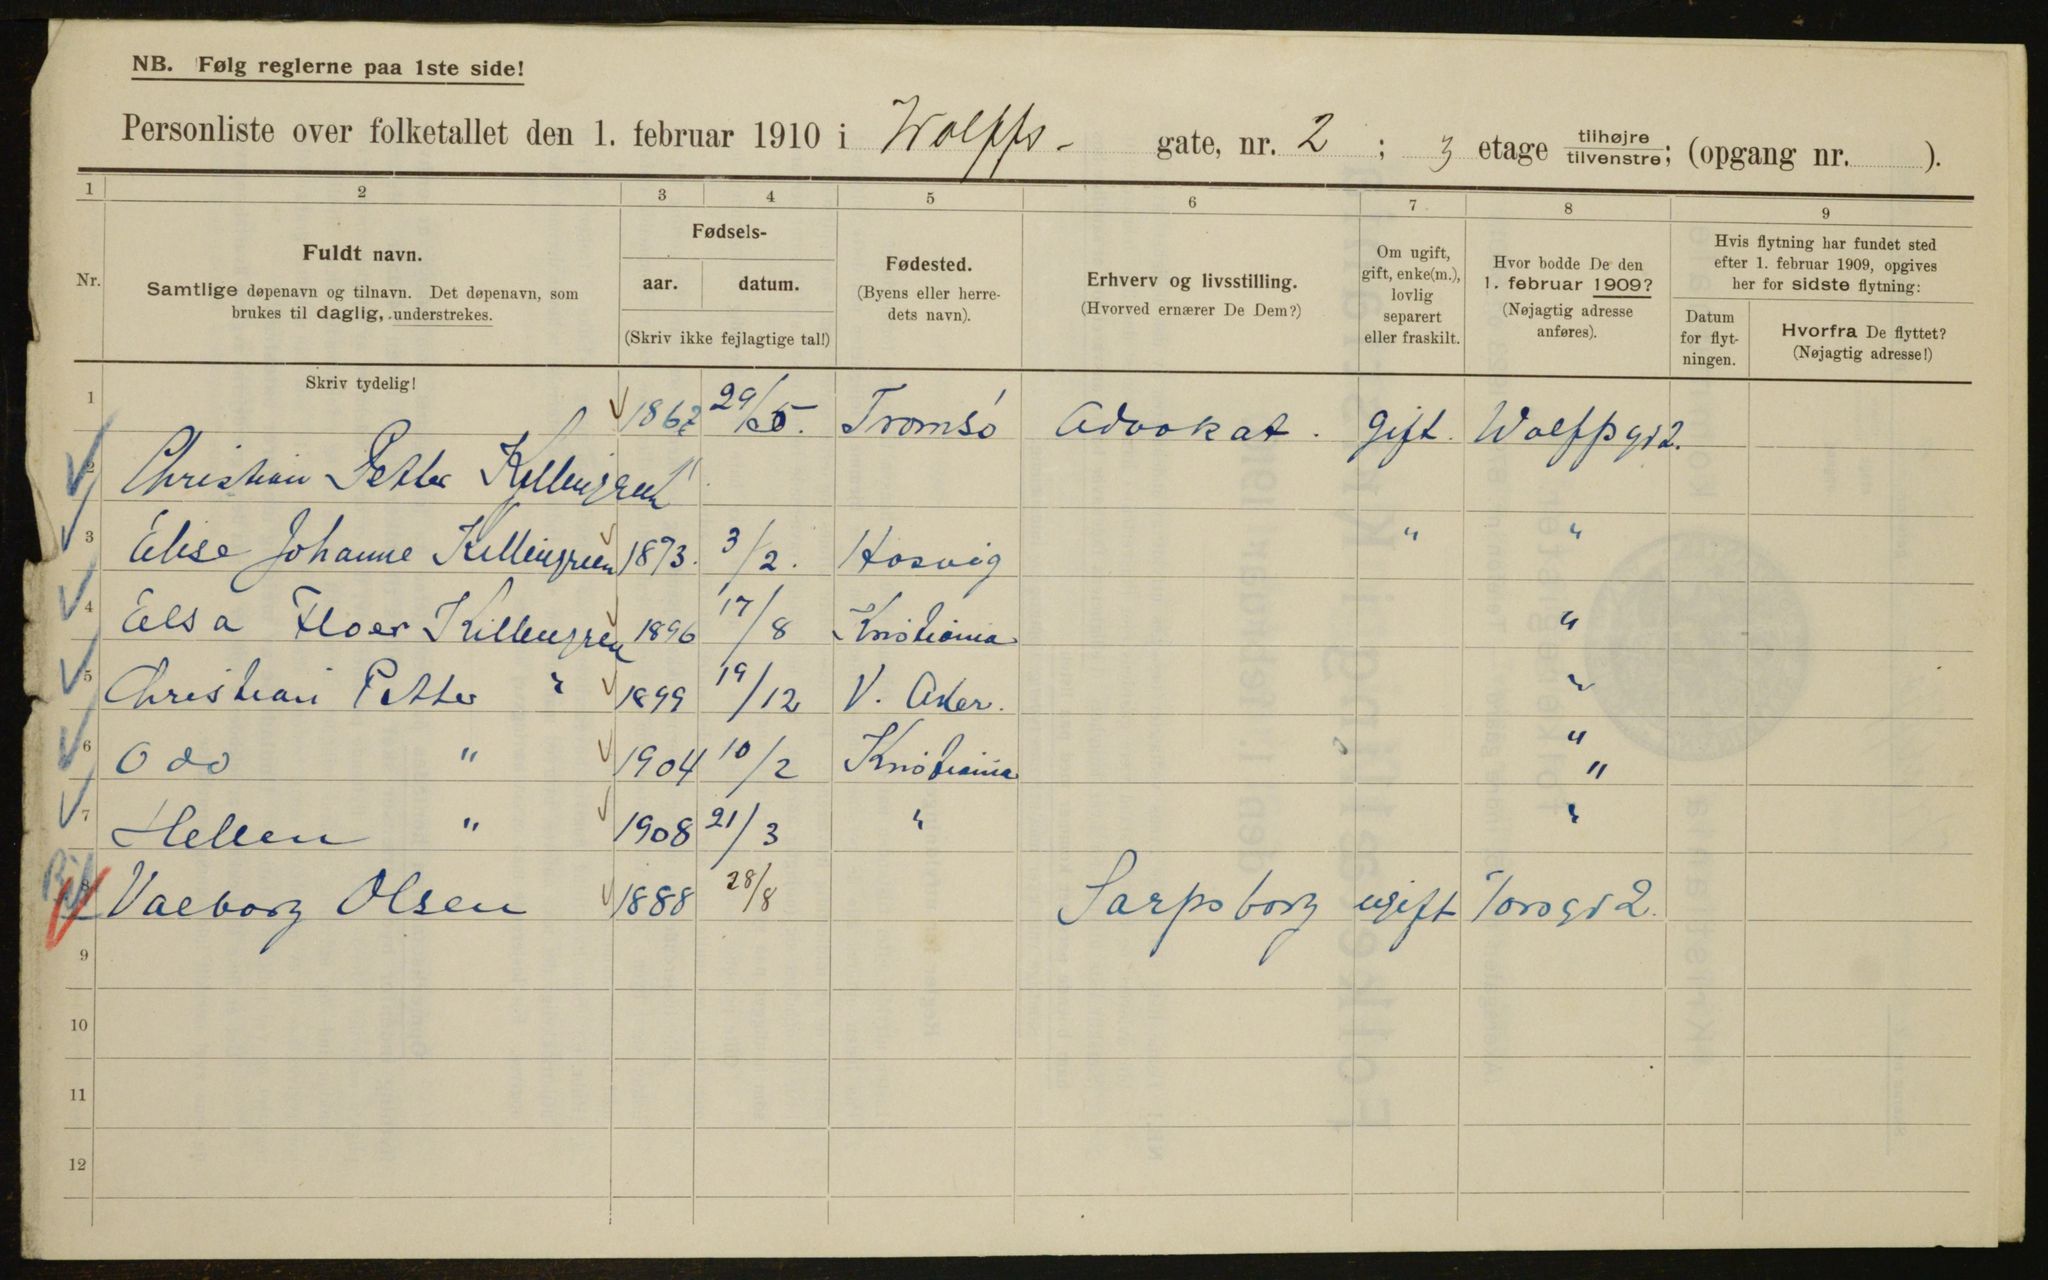 NB. Følg reglerne paa 1ste side!
Personliste over folketallet den 1. februar 1910 i Wolffs- gate, nr. 2 ; 3 etage tilhøjre/tilvenstre; (opgang nr. ).
1 2 3 4 5 6 7 8 9
Nr.
Fuldt navn.
Samtlige døpenavn og tilnavn. Det døpenavn, som
brukes til daglig, understrekes.
Fødsels-
aar. datum.
(Skriv ikke fejlagtige tal!)
Fødested.
(Byens eller herre-
dets navn).
Erhverv og livsstilling.
(Hvorved ernærer De Dem?)
Om ugift,
gift, enke(m.),
lovlig
separert
eller fraskilt.
Hvor bodde De den
1. februar 1909?
(Nøjagtig adresse
anføres).
Hvis flytning har fundet sted
efter 1. februar 1909, opgives
her for sidste flytning:
Datum
for flyt-
ningen.
Hvorfra De flyttet?
(Nøjagtig adresse!)
Skriv tydelig!
1 1862 29/5. Tromsø Advokat. gift. Wolffsgt 2.
2 Christian Petter Killengreen
3 Elise Johanne Killengreen 1873. 3/2. Hosvig " "
4 Elsa Floer Killengreen 1896 17/8 Kristiania "
5 Christian Petter " 1899 19/12 V. Aker. "
6 Odo " 1904 10/2 Kristiania " "
7 Hellen " 1908 21/3 " "
8 Valborg Olsen 1888 28/8 Sarpsborg ugift
9
10
11
12